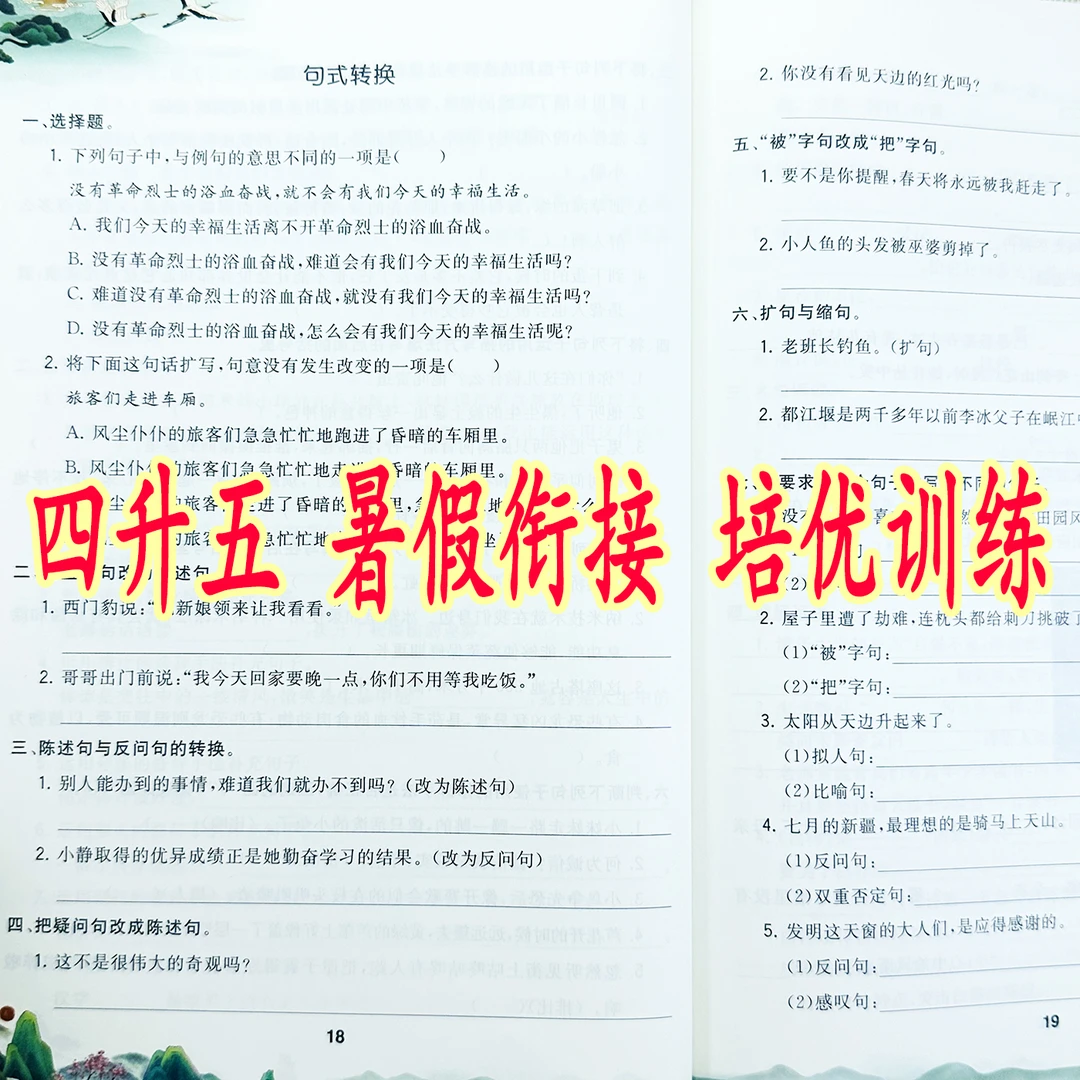 句式转换
一、选择题。
1. 下列句子中,与例句的意思不同的一项是(  )
没有革命烈士的浴血奋战,就不会有我们今天的幸福生活。
A. 我们今天的幸福生活离不开革命烈士的浴血奋战。
B. 没有革命烈士的浴血奋战,难道会有我们今天的幸福生活吗?
C. 难道没有革命烈士的浴血奋战,就没有我们今天的幸福生活吗?
D. 没有革命烈士的浴血奋战,怎么会有我们今天的幸福生活呢?
2. 将下面这句话扩写,句意没有发生改变的一项是(  )
旅客们走进车厢。
A. 风尘仆仆的旅客们急急忙忙地跑进了昏暗的车厢里。
B. 风尘仆仆的旅客们急急忙忙地走进昏暗的车厢里。
四升五 暑假衔接 培优训练
1. 西门豹说:“ 新娘领来让我看看。
2. 哥哥出门前说:“我今天回家要晚一点,你们不用等我吃饭。”
三、陈述句与反问句的转换。
1. 别人能办到的事情,难道我们就办不到吗?(改为陈述句)
2. 小静取得的优异成绩正是她勤奋学习的结果。(改为反问句)
四、把疑问句改成陈述句。
1. 这不是很伟大的奇观吗?
18
2. 你没有看见天边的红光吗?
五、“被”字句改成“把”字句。
1. 要不是你提醒,春天将永远被我赶走了。
2. 小人鱼的头发被巫婆剪掉了。
六、扩句与缩句。
1. 老班长钓鱼。(扩句)
2. 都江堰是两千多年以前李冰父子在岷江
(2)
2. 屋子里遭了劫难,连枕头都给刺刀挑破了
(1)“被”字句:
(2)“把”字句:
3. 太阳从天边升起来了。
(1)拟人句:
(2)比喻句:
4. 七月的新疆,最理想的是骑马上天山。
(1)反问句:
(2)双重否定句:
5. 发明这天窗的大人们,是应得感谢的。
(1)反问句:
(2)感叹句:
19